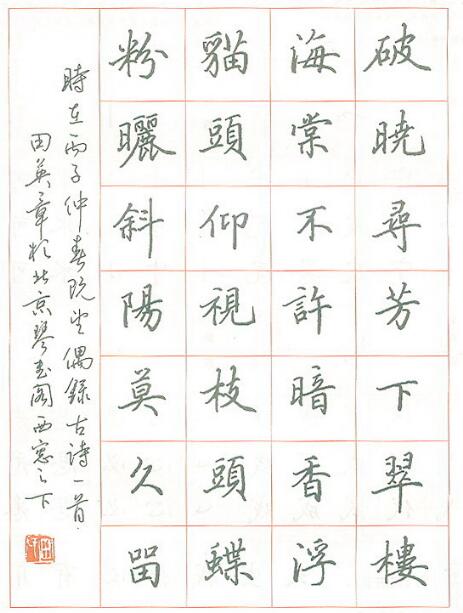 破曉尋芳下翠樓
海棠不許暗香浮
貓頭仰視枝頭蝶
粉曬斜陽莫久留
時在丙子仲春既望偶錄古詩一首
田英章於北京琴玄阁西窓之下